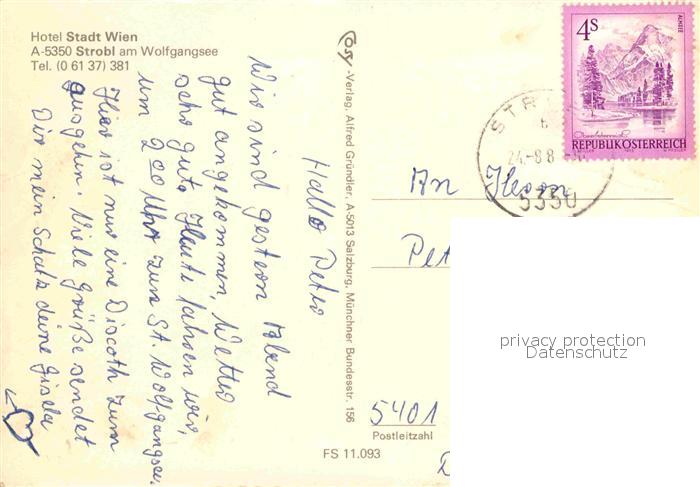 Hotel Stadt Wien
A-5350 Strobl am Wolfgangsee
Tel. (0 61 37) 381
Hallo Peter
Wir sind gestern Abend
gut angekommen, Wetter
sehr gut. Heute fahren wir,
um 2 00 Uhr zum St. Wolfgangsee.
Hier ist nur eine Discoth zum
ausgehen. Viele Grüße sendet
Dir mein Schatz deine Gisela
Cosy -Verlag, Alfred Gründler, A-5013 Salzburg, Münchner Bundesstr. 156
4S
ALMSEE
Oberösterreich
REPUBLIK ÖSTERREICH
24.-8.8
5350
An Herrn
Pet
privacy protection
Datenschutz
5401
Postleitzahl
FS 11.093